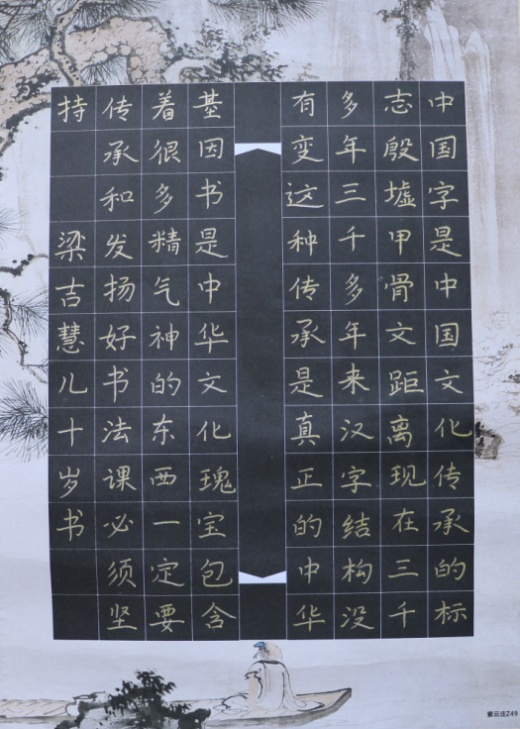 中国字是中国文化传承的标
志殷墟甲骨文距离现在三千
多年三千多年来汉字结构没
有变这种传承是真正的中华
基因书是中华文化瑰宝包含
着很多精气神的东西一定要
传承和发扬好书法课必须坚
持 梁吉慧儿十岁书
紫云庄Z49